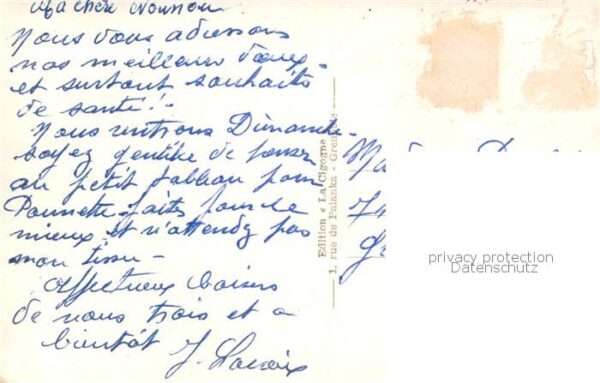 Ma chère
Nous vous adressons
nos meilleurs vœux -
et surtout souhaits
de santé!.
Nous rentrons Dimanche -
soyez gentille de penser
au petit tableau pour
faites pour le
mieux et n'attendez pas
mon tissu -
Affectueux baisers
de nous trois et a
bientôt J. Lacroix
Edition « La Cigogne »
1, rue de Palanka - Grenoble
privacy protection
Datenschutz